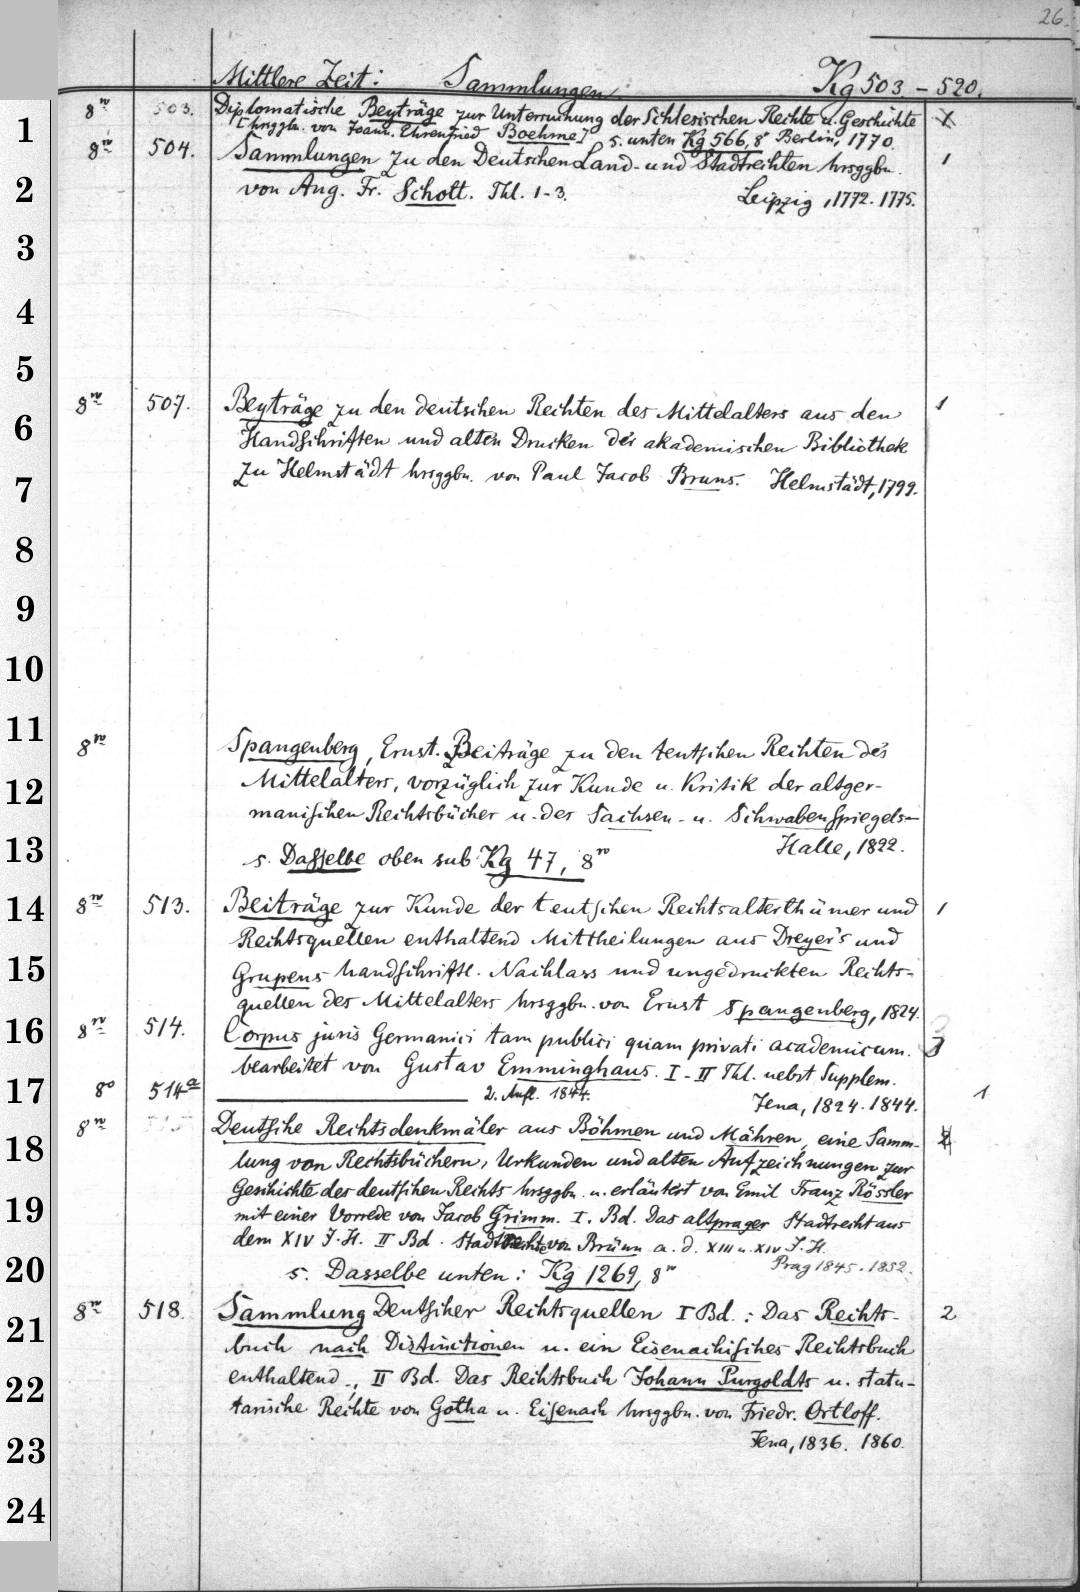 26.
Mittlere Zeit: Sammlungen Kg 503 - 520.
8º 503. Diplomatische Beyträge zur Untersuchung der Schlesischen Rechte u. Geschichte
1 [hrsggb. von Joann. Ehrenfried Boehme] s. unten Kg 566, 8º Berlin, 1770.
8º 504. Sammlungen zu den Deutschen Land- und Stadtrechten hrsggbn. 1
2 von Aug. Fr. Schott. Thl. 1-3. Leipzig, 1772. 1775.
3
4
5
8º 507. Beyträge zu den deutschen Rechten des Mittelalters aus den 1
6 Handschriften und alten Drucken der akademischen Bibliothek
7 zu Helmstädt hrsggbn. von Paul Jacob Bruns. Helmstädt, 1799.
8
9
10
11
8º Spangenberg, Ernst. Beiträge zu den teutschen Rechten des
12 Mittelalters, vorzüglich zur Kunde u. Kritik der altger-
manischen Rechtsbücher u. des Sachsen- u. Schwabenspiegels
13 s. Dasselbe oben sub Kg 47, 8º Halle, 1822.
14 8º 513. Beiträge zur Kunde der teutschen Rechtsalterthümer und 1
Rechtsquellen enthaltend Mittheilungen aus Dreyer's und
15 Grupens handschriftl. Nachlass und ungedruckten Rechts-
quellen des Mittelalters hrsggbn. von Ernst Spangenberg, 1824.
16 8º 514. Corpus juris Germanici tam publici quam privati academicum. 3
bearbeitet von Gustav Emminghaus. I-II Thl. nebst Supplem.
17 8º 514a 2. Aufl. 1844. Jena, 1824. 1844. 1
8º 515 Deutsche Rechtsdenkmäler aus Böhmen und Mähren, eine Samm-
18 lung von Rechtsbüchern, Urkunden und alten Aufzeichnungen zur
Geschichte des deutschen Rechts hrsggbn. u. erläutert von Emil Franz Rössler
19 mit einer Vorrede von Jacob Grimm. I. Bd. Das altprager Stadtrecht aus
dem XIV J.H. II Bd. Stadtrechte von Brünn a. d. XIII u. XIV J.H.
20 s. Dasselbe unten: Kg 1269, 8º Prag 1845. 1852.
8º 518. Sammlung Deutscher Rechtsquellen I Bd.: Das Rechts- 2
21 buch nach Distinctionen u. ein Eisenachisches Rechtsbuch
22 enthaltend., II Bd. Das Rechtsbuch Johann Purgoldts u. statu-
tarische Rechte von Gotha u. Eisenach hrsggbn. von Friedr. Ortloff.
23 Jena, 1836. 1860.
24